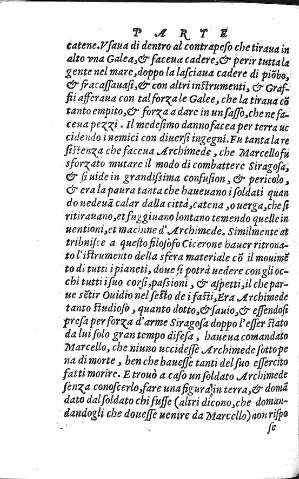 PARTE
catene. Vsaua di dentro al contrapeso che tiraua in
alto vna Galea, & faceua cadere, & perir tutta la
gente nel mare, doppo la lasciaua cadere di piōbo,
& fracassauasi, & con altri instrumenti, & Graf-
fii afferaua con tal forza le Galee, che la tiraua cō
tanto empito, & forza a dare in un sasso, che ne fa-
ceua pezzi. Il medesimo danno facea per terra uc-
cidendo i nemici con diuersi ingegni. Fu tanta la re
sistenza che faceua Archimede, che Marcello fu
sforzato mutare il modo di combattere Siragosa,
& si uide in grandissima confusion, & pericolo,
& era la paura tanta che haueuano i soldati quan
do uedeuā calar dalla città, catena, o uerga, che si
ritirauano, et fuggiuano lontano temendo quelle in
uentioni, et machine d'Archimede. Similmente at
tribuisce a questo filosofo Cicerone hauer ritrona-
to l'istrumento della sfera materiale cō il mouimē
to di tutti i pianeti, doue si potrà uedere con gli oc-
chi tutti i suo corsi, passioni, & aspetti, il che par-
ue sētir Ouidio nel sesto de i fasti, Era Archimede
tanto studioso, quanto dotto, & sauio, & essendosi
presa per forza d'arme Siragosa doppo l'esser stato
da lui solo gran tempo difesa, haueua comandato
Marcello, che niuno uccidesse Archimede sotto pe
na di morte, ben che hauesse tanti del suo essercito
fatti morire. E trouò a caso un soldato Archimede
senza conoscerlo, fare una figura in terra, & domā
dato dal soldato chi fusse (altri dicono, che doman-
dandogli che douesse uenire da Marcello) non rispo
se